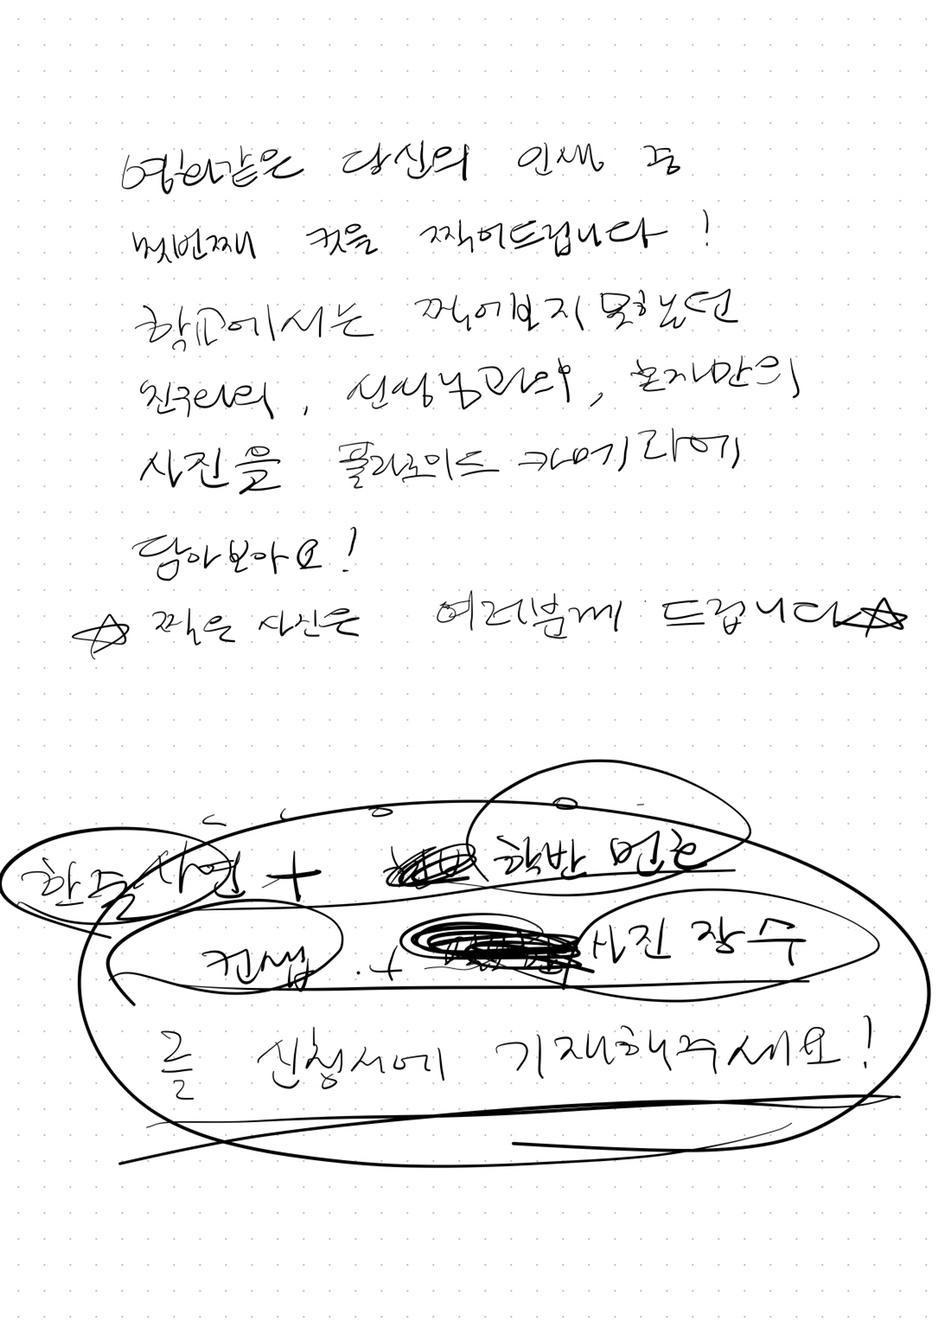 영화같은 당신의 인생 중
첫번째 컷을 찍어드립니다!
학교에서는 찍어보지 못했던
친구와의, 선생님과의, 혼자만의
사진을 폴라로이드 카메라에
담아보아요!
☆ 찍은 사진은 여러분께 드립니다 ☆
한줄 사연 + 학반 번호
컨셉 + 사진 장수
를 신청서에 기재해주세요!